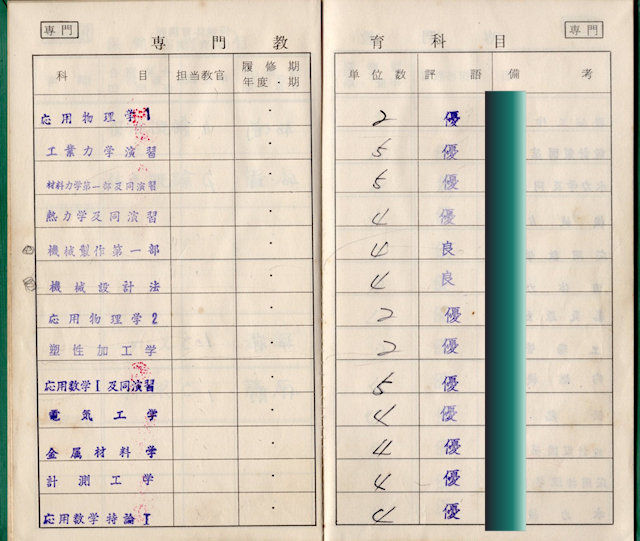 専門
専門
専門教育科目
科目 担当教官 履修期 年度・期 単位数 評語 備考
応用物理学1 ・ 2 優
工業力学演習 ・ 5 優
材料力学第一部及同演習 ・ 5 優
熱力学及同演習 ・ 4 優
機械製作第一部 ・ 4 良
機械設計法 ・ 4 良
応用物理学2 ・ 2 優
塑性加工学 ・ 2 優
応用数学I及同演習 ・ 5 優
電気工学 ・ 4 優
金属材料学 ・ 4 優
計測工学 ・ 4 優
応用数学特論I ・ 4 優